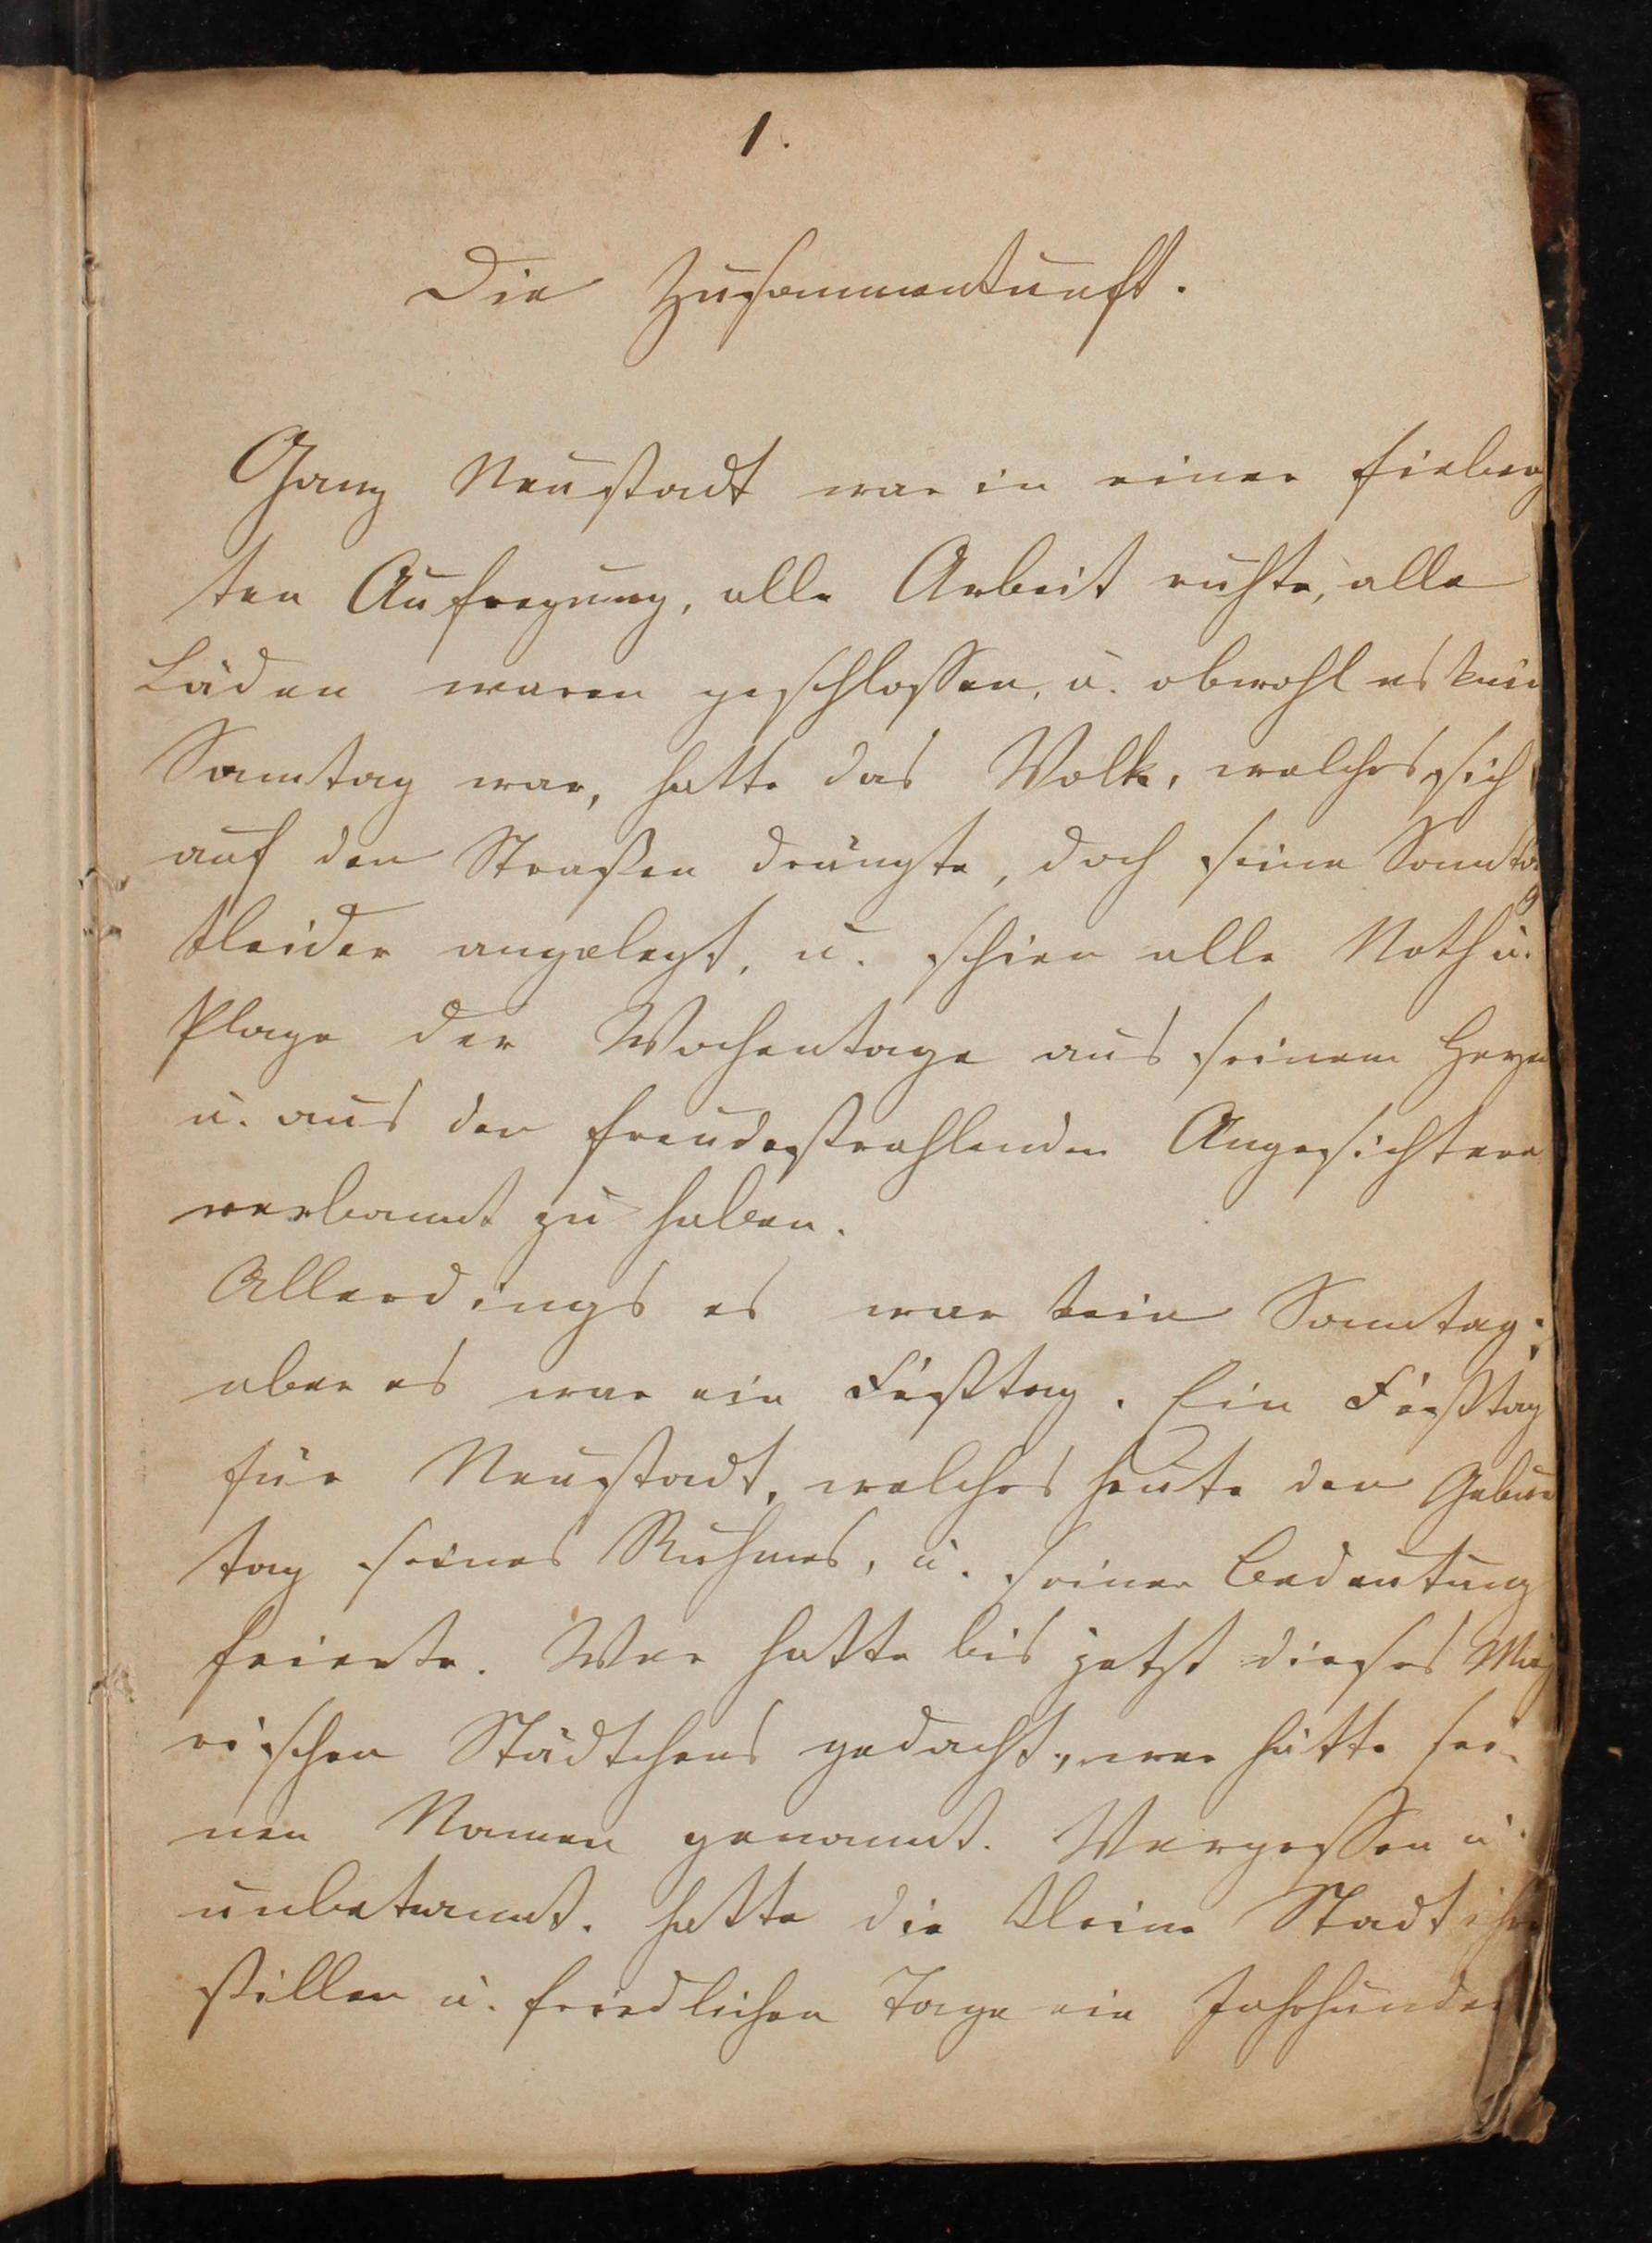 1.
Die Zusammenkunft.
Ganz Neustadt war in einer fieberh
ten Aufregung, alle Arbeit ruhte, alle
Läden waren geschlossen, u. obwohl es kein
Sonntag war, hatte das Volk, welches sich
auf den Straßen drängte, doch seine Sonntag
kleider angelegt, u. schien alle Noth u.
Plage der Wochentage aus seinem Herzen
u. aus den freudestrahlenden Angesichtern
verbannt zu haben.
Allerdings es war kein Sonntag;
aber es war ein Festtag. Ein Festtag
für Neustadt, welches heute den Gebur
tag seines Ruhmes, u. seiner Bedeutung
feierte. Wer hatte bis jetzt dieses Mäh
rischen Städtchens gedacht, wer hätte sei-
nen Namen genannt. Vergessen u.
unbekannt. hatte die kleine Stadt ihre
stillen u. friedlichen Tage ein Jahrhunder